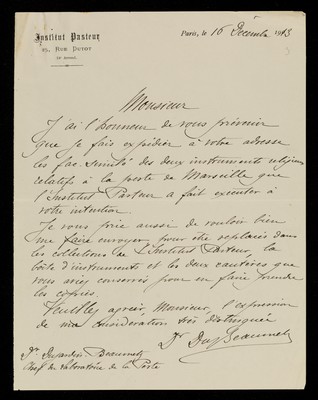 Institut Pasteur
25, Rue Dutot
Paris, le 16 Décembre 1913
Monsieur
J'ai l'honneur de vous prévenir
que je fais expédier à votre adresse
les fac. similés des deux instruments
relatifs à la peste de Marseille que
l'Institut Pasteur a fait exécuter à
votre intention.
Je vous prie aussi de vouloir bien
me faire envoyer pour être replacés dans
les collections de l'Institut Pasteur, la
boîte d'instruments et les deux cautères que
vous aviez conservés pour en faire prendre
les copies.
Veuillez agréer, Monsieur, l'expression
de ma considération très distinguée
Dr Duj Beaumetz
Dr Dujardin Beaumetz
Chef de Laboratoire de la Peste